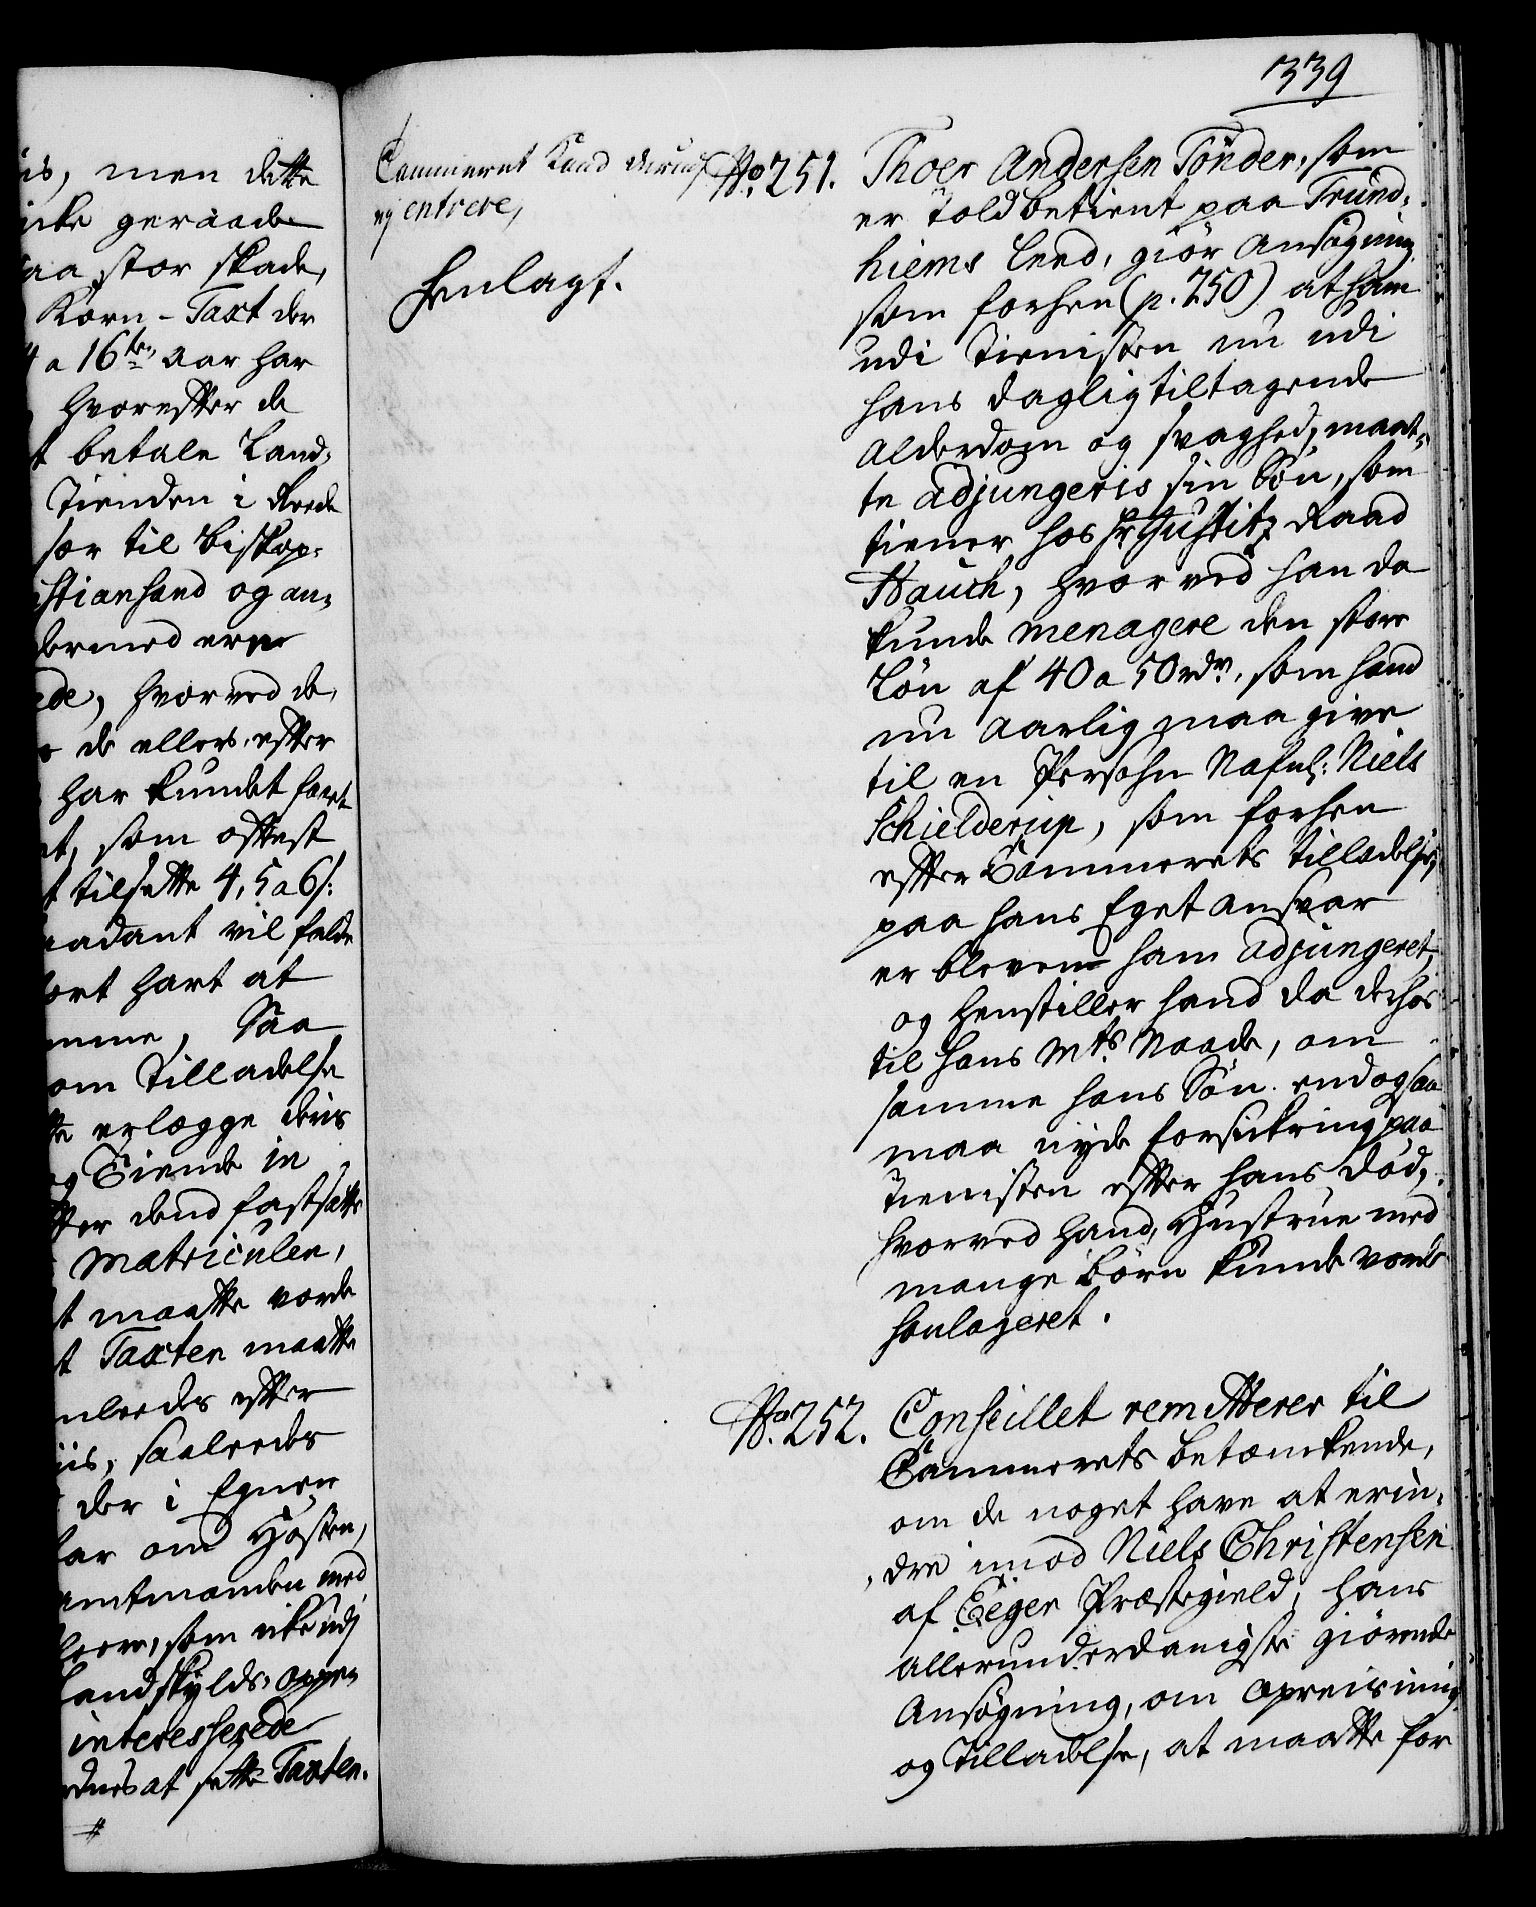 is, men dette
icke geraade
aa stor skade,
Korn-Taxt der
4 a 16ten aar har
hvorefter de
t betale Land-
Tienden i Reede
sær til Biskop-
istiansand og an-
dermed ere
ede, hvorved de,
de ellers, efter
har kundet faaet
et, som oftest
t tilsatte 4, 5 a 6 s:
aadant vil falde
ort hart at
mme, Saa
om Tilladelse
te erlægge deris
og Tiende in
fter dend fastsatte
Matriculen,
t maatte vorde
t Taxten maatte
nleedes efter
iis, saaleedes
der i Egnen
ar om Høsten,
amtmanden med
som icke udj
Landskylds
interesserede
at sette Taxten.
339
Cammeret Kand derudj
ej entrere,
Henlagt.
No. 251. Thoer Andersen Tønder, som
er Toldbetient paa Trund-
hiems Leed, giør Ansøgning
som forhen (p. 250) at ham
udi Tienisten nu udi
hans dagligtiltagende
Alderdom og svaghed, maat-
te adjungeris sin Søn, som
tiener hos Hr. Justitz Raad
Hauch, hvorved han da
kunde menagere den store
Løn af 40 a 50 rdr. som hand
nu aarlig maa give
til en Persohn Nafnl: Niels
Schielderup, som forhen
efter Cammerets tilladelse,
paa hans Eget ansvar
er bleven ham adjungeret,
og henstiller hand da derhos
til hans Mts Naade, om
samme hans Søn endogsaa
maa nyde forsickring paa
Tienisten efter hans død,
hvorved hand, Hustrue med
mange børn kunde vorde
soulageret.
No. 252. Conseillet remitterer til
Cammerets betænckende,
om de noget have at erin-
dre imod Niels Christensen
af Eeger Præstegield, hans
allerunderdanigste giørende
Ansøgning, om opreisning
og Tilladelse, at maatte for